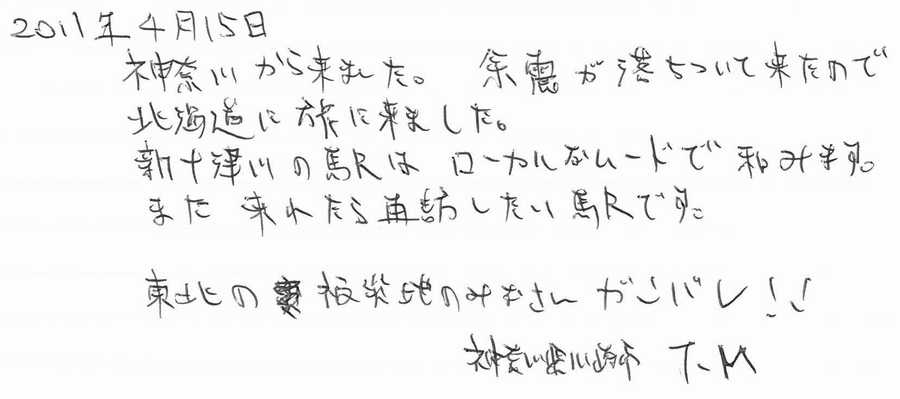 2011年4月15日
神奈川から来ました。 余震が落ちついて来たので
北海道に旅に来ました。
新十津川の駅は ローカルなムードで 和みます。
また 来れたら再訪したい駅です。
東北の 被災地のみなさん ガンバレ!!
神奈川県川崎市 T.M